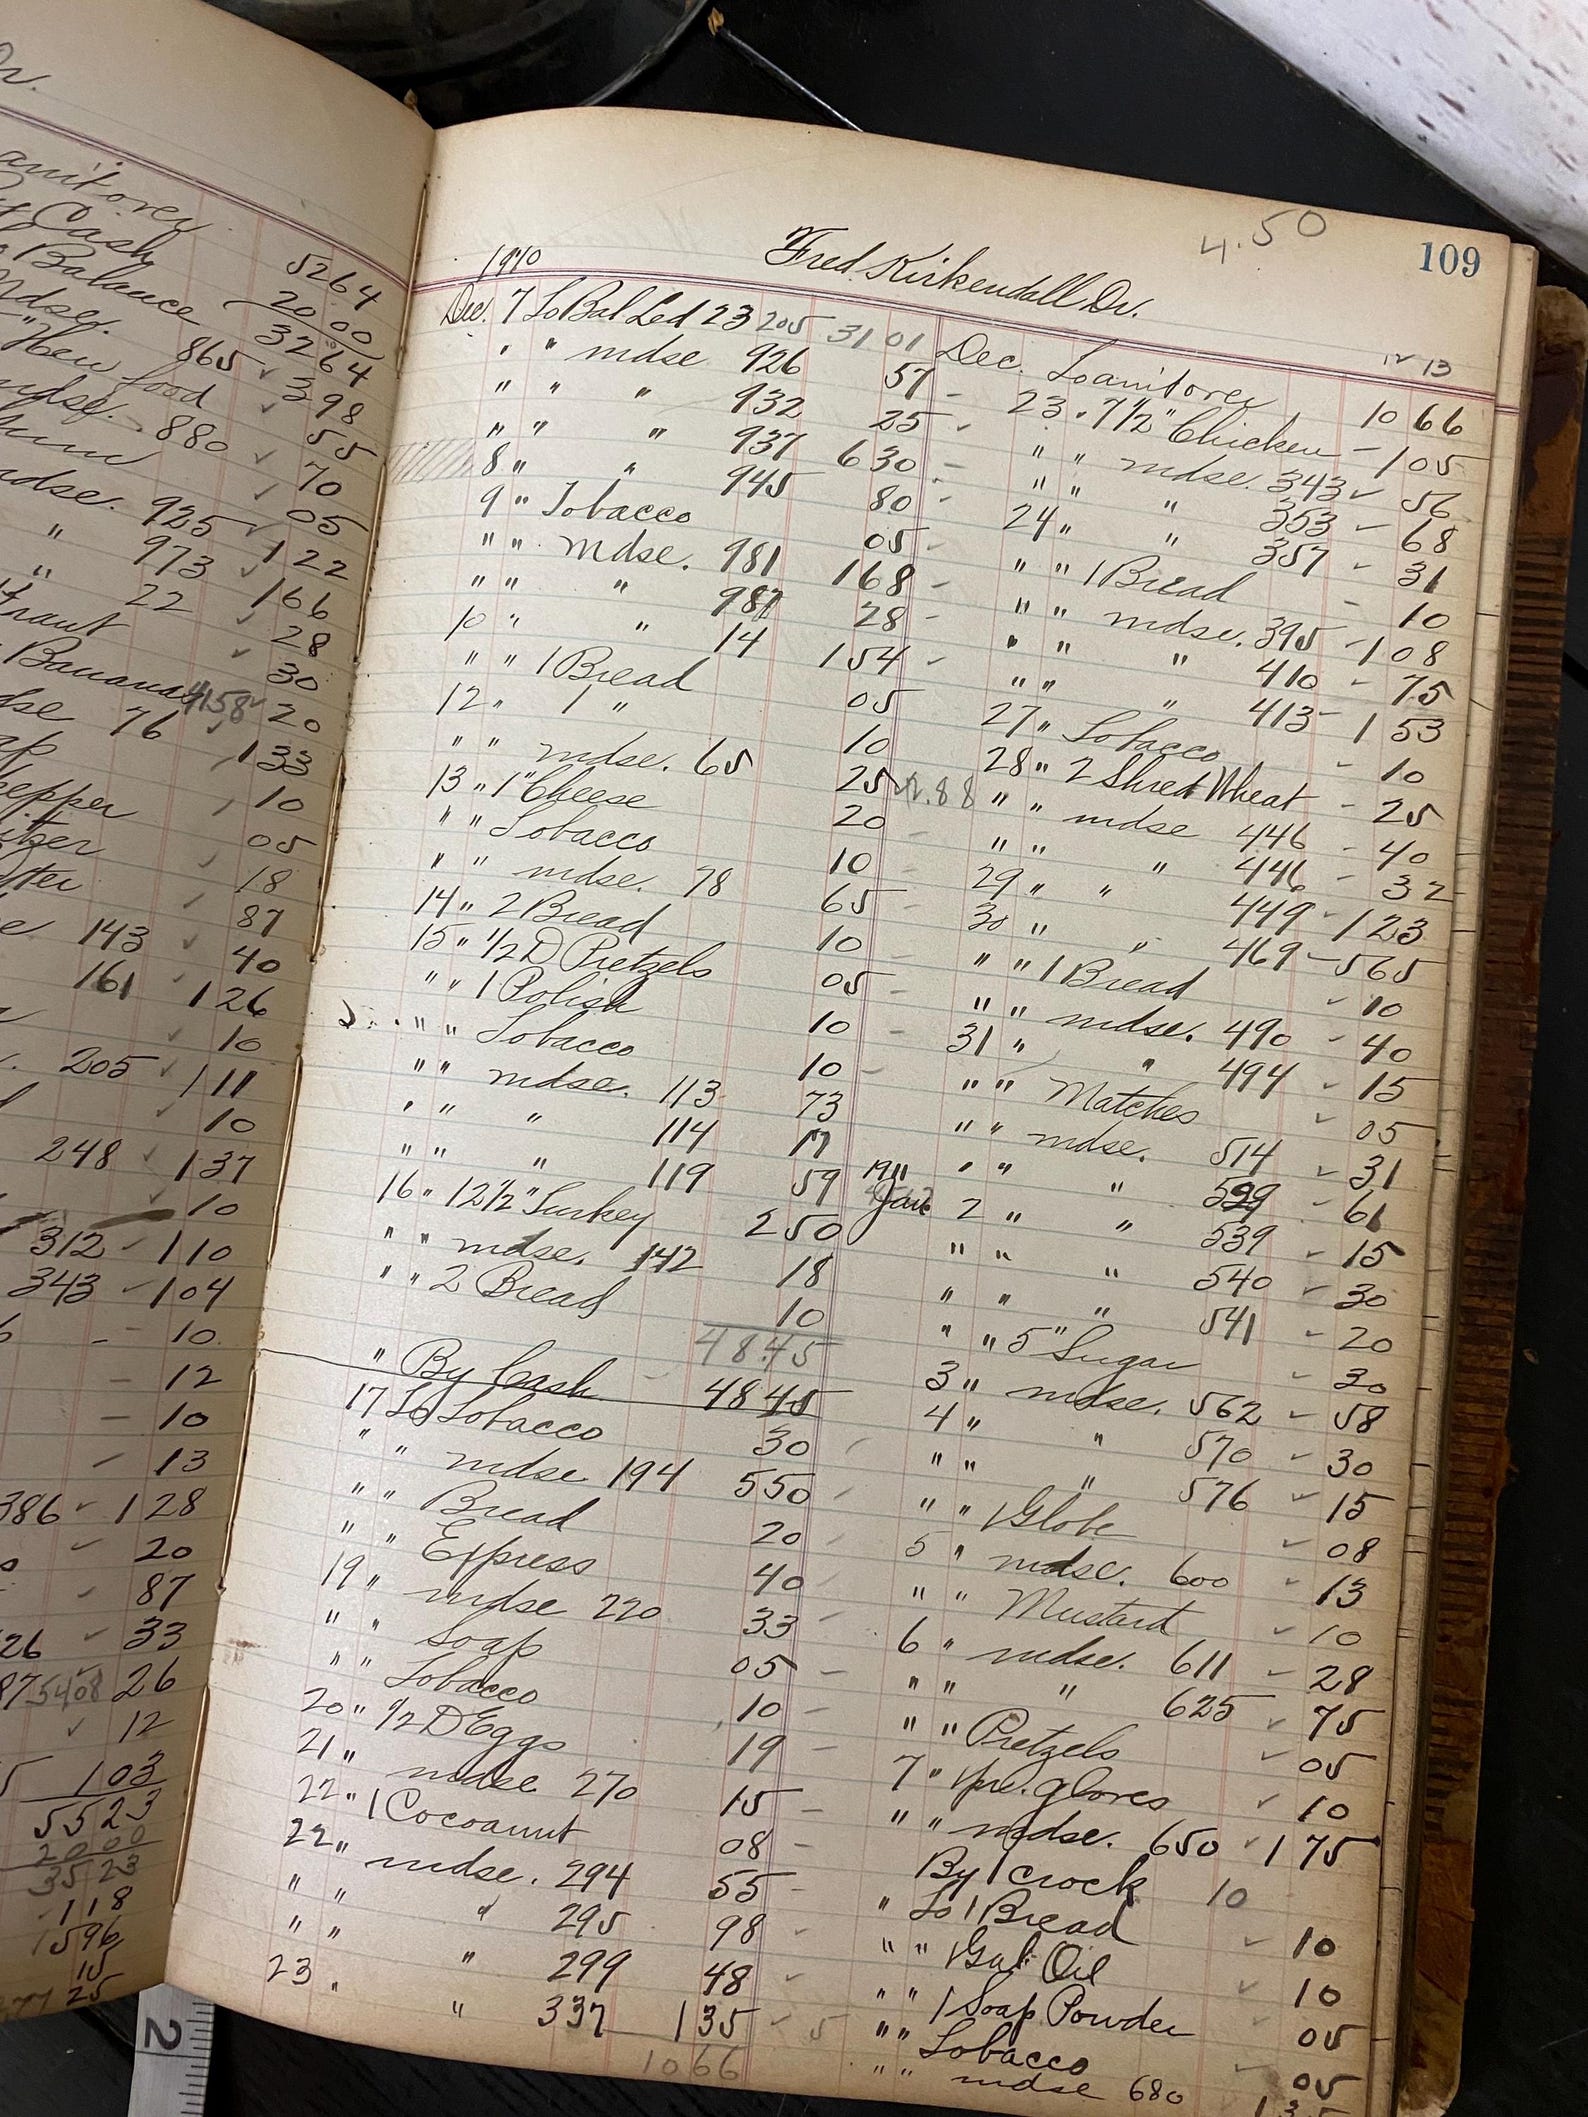 Dr.
Cash 5264
Balance 2000
Mdse. 3264
865 ✓ 398
food ✓ 55
mdse. 880 ✓ 70
✓ 05
mdse. 925 ✓ 122
" 973 ✓ 166
" 22 ✓ 28
Kraut ✓ 30
Bananas 4158 ✓ 20
76 ✓ 133
10
pepper 05
✓ 18
✓ 87
143 ✓ 40
161 ✓ 126
✓ 10
205 ✓ 111
✓ 10
248 ✓ 137
✓ 10
312 - 110
343 - 104
- 10
- 12
- 10
- 13
386 ✓ 128
✓ 20
- 87
26 ✓ 33
87 5408 26
✓ 12
103
5523
2000
3523
118
1596
15
25
4.50
109
1910 Fred Kirkendall Dr.
Dec. 7 To Bal Led 23 205 31 01
" " mdse 926 57 -
" " " 932 25 -
" " " 937 6 30 -
8 " " 945 80 -
9 " Tobacco 05 -
" " mdse. 981 1 68 -
" " " 987 28 -
10 " " 14 1 54 -
" " 1 Bread 05
12 " 1 " 10
" " mdse. 65 25
13 " 1" Cheese 20 -
" " Tobacco 10 -
" " mdse. 78 65 -
14 " 2 Bread 10 -
15 " 1/2 D Pretzels 05 -
" " 1 Polish 10 -
" " Tobacco 10 -
" " mdse. 113 73
" " " 114 17
" " " 119 59
16 " 12 1/2" Turkey 2 50
" " mdse. 142 18
" " 2 Bread 10
48.45
" By Cash - 48 45
17 To Tobacco 30
" " mdse 194 5 50
" " Bread 20
" " Express 40
19 " mdse 220 33
" " Soap 05 -
" " Tobacco 10 -
20 " 1/2 D Eggs 19 -
21 " mdse 270 15 -
22 " 1 Cocoanut 08 -
22 " mdse. 294 55 -
" " " 295 98 -
" " " 299 48 -
23 " " 337 1 35 -
1066
12 13
Dec. 10 66
23 " 7 1/2" Chicken - 1 05
" " mdse. 343 ✓ 56
" " " 353 - 68
24 " " 357 - 31
" " 1 Bread - 10
" " mdse. 395 - 1 08
" " " 410 - 75
" " " 413 - 1 53
27 " Tobacco - 10
28 " 2 Shred Wheat - 25
" " mdse 446 - 40
" " " 446 - 32
29 " " 449 - 1 23
30 " " 469 - 5 65
" " 1 Bread ✓ 10
" " mdse. 490 - 40
31 " " 494 - 15
" " Matches ✓ 05
" " mdse. 514 ✓ 31
1911
" " " - 61
Jan 2 " " 539 - 15
" " " 540 ✓ 30
" " " 541 - 20
" " 5" Sugar - 30
3 " mdse. 562 - 58
4 " " 570 ✓ 30
" " " 576 ✓ 15
" " 1 Globe ✓ 08
5 " mdse. 600 - 13
" " Mustard ✓ 10
6 " mdse. 611 - 28
" " " 625 ✓ 75
" " Pretzels ✓ 05
7 " 1 pr. gloves ✓ 10
" " mdse. 650 ✓ 1 75
By 1 crock 10
" To 1 Bread ✓ 10
" " 1 Gal Oil ✓ 10
" " 1 Soap Powder 05
" " Tobacco 05
" " mdse 680
2